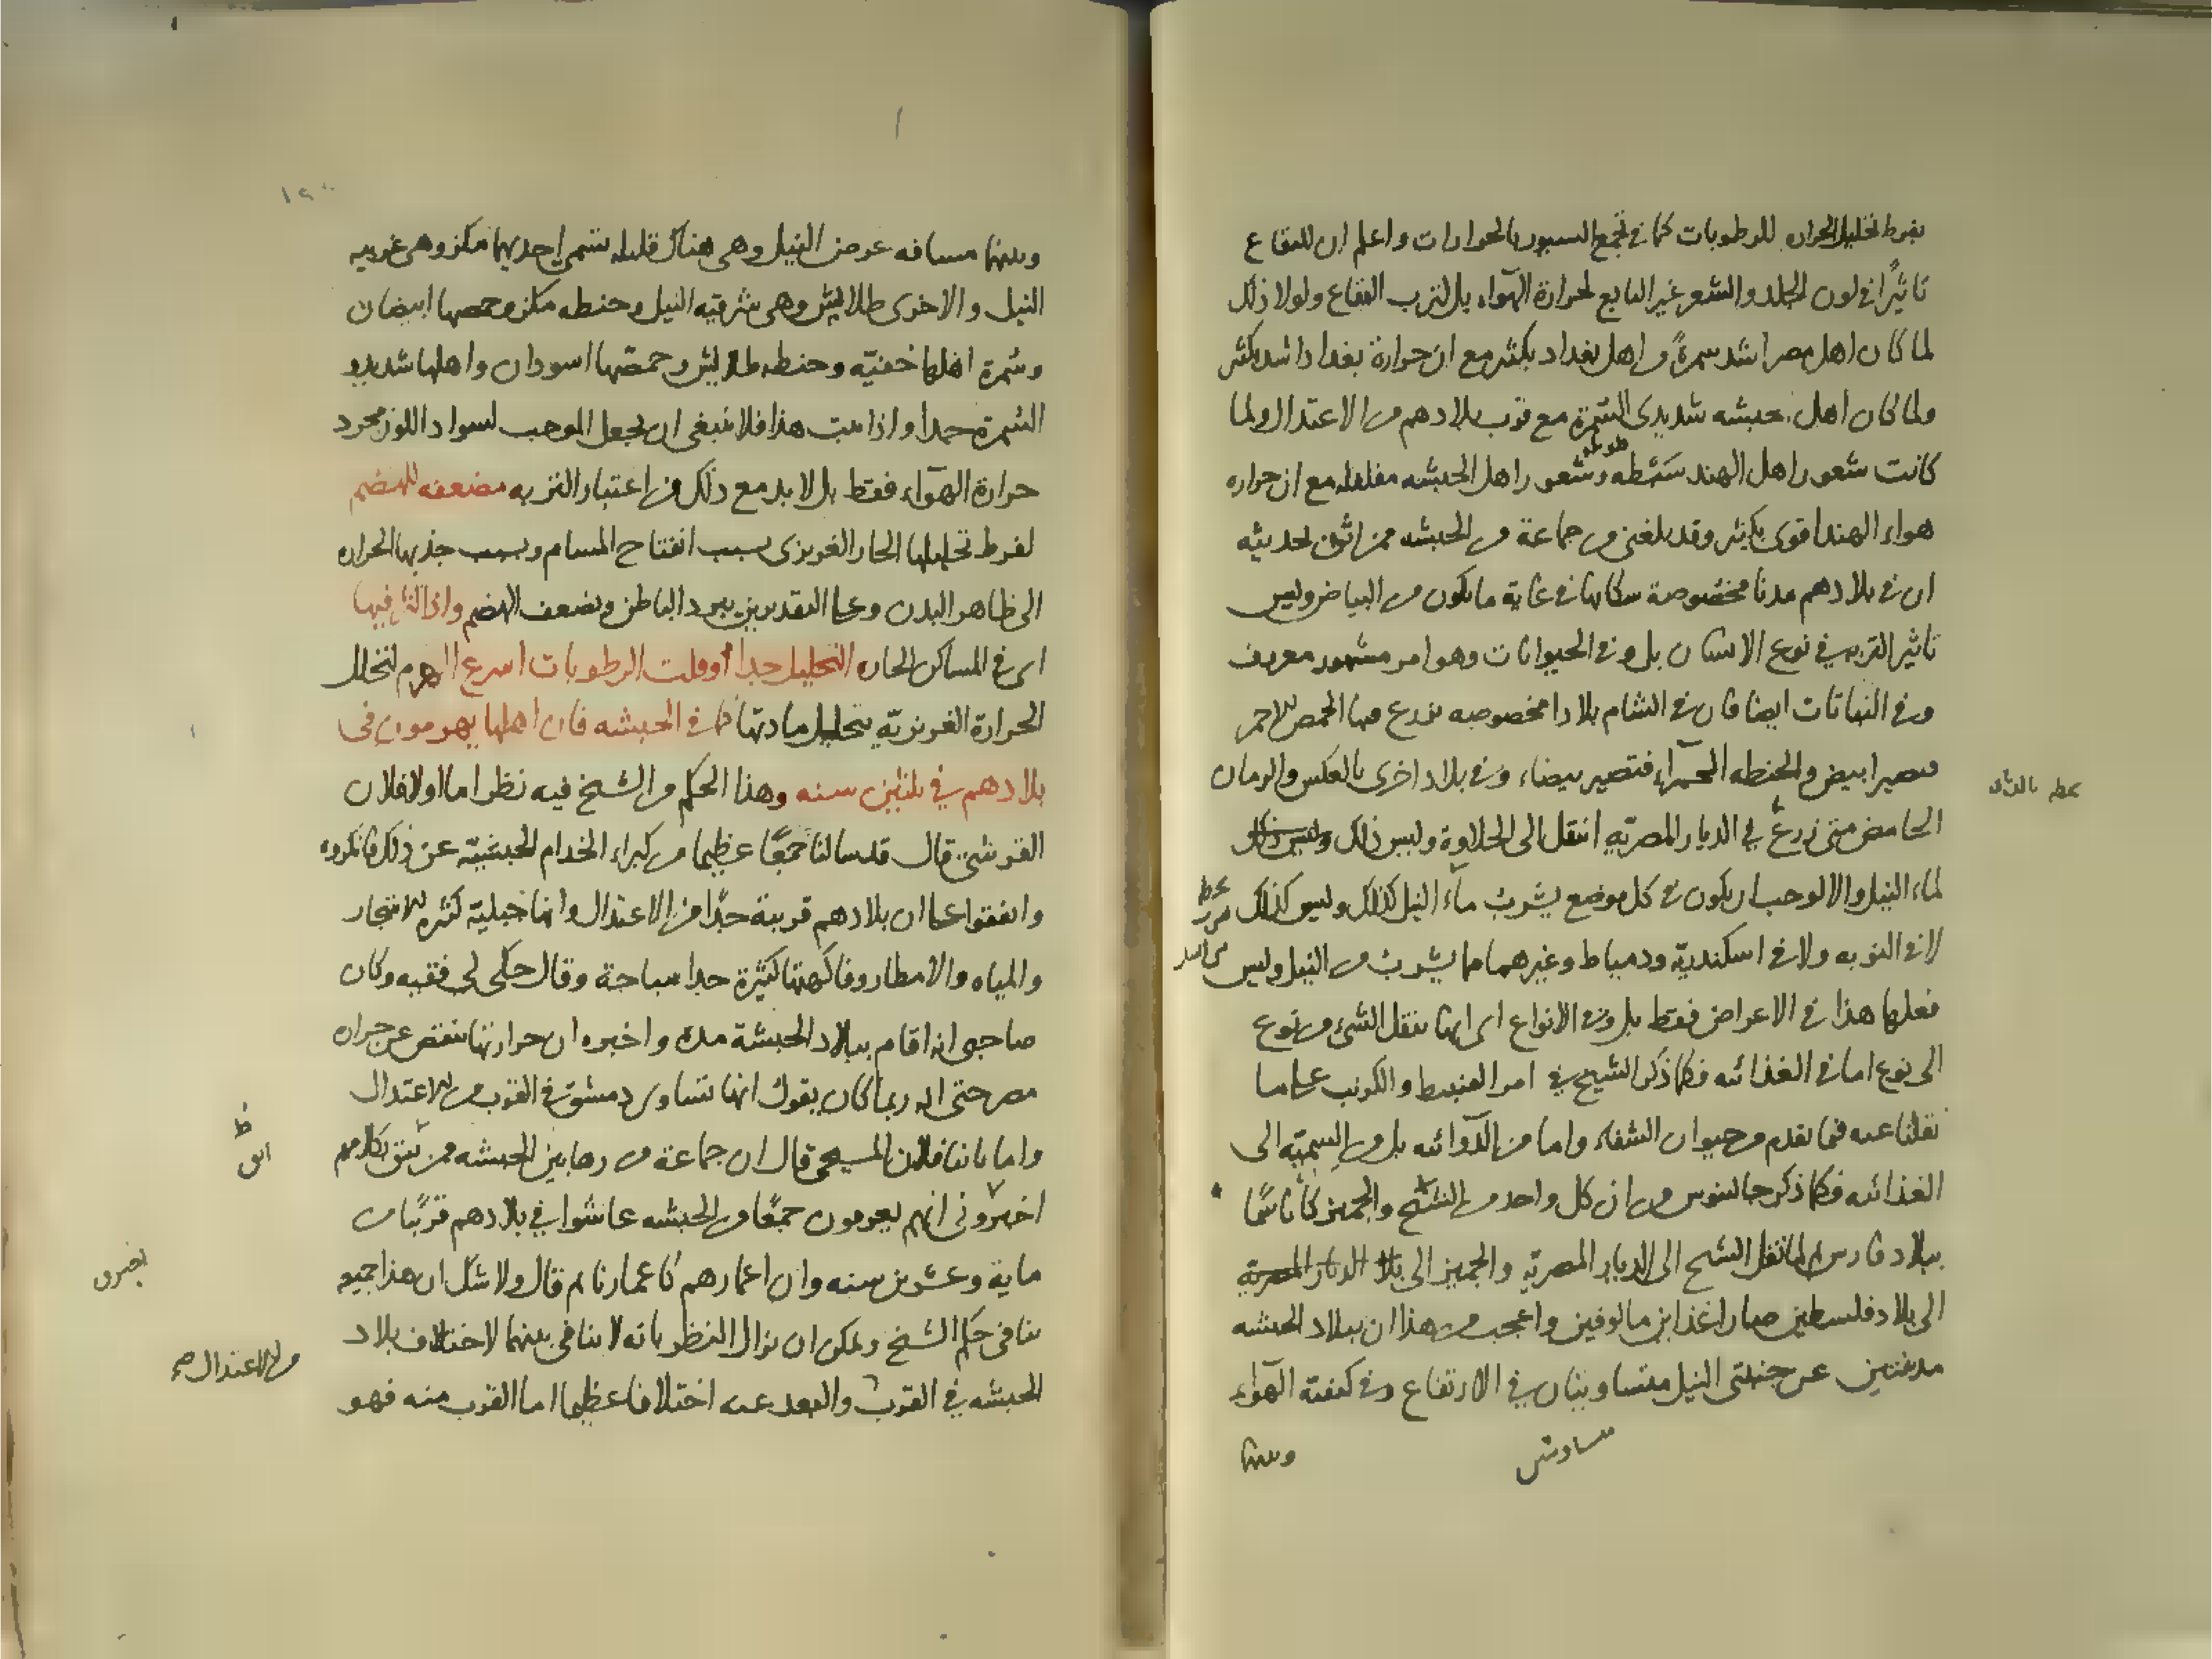 بفرط تحليل الحرارة للرطوبات كما في تجمع السيور بالحرارات واعلم ان للبقاع
تاثيرًا في لون الجلد والشعر غير التابع لحرارة الهوآء بل لترب البقاع ولولا ذلك
لما كان اهل مصر اشد سمرةً من اهل بغداد بكثير مع ان حرارة بغداد اشد بكثير
ولما كان اهل حبشه شديدى السمرة مع قرب بلادهم من الاعتدال ولما
كانت شعور اهل الهند سبطه طويله وشعور اهل الحبشه مفلفله مع ان حراره
هواء الهند اقوى بكثير وقد بلغنى من جماعة من الحبشه ممن اثق بحديثه
ان في بلادهم مدنا مخصوصة سكانها في غاية ما يكون من البياض وليس
تاثير التربه في نوع الانسان بل وفي الحيوانات وهو امر مشهور معروف
وفي النباتات ايضا فان في الشام بلادا مخصوصه يزرع فيها الحمص الاحمر
فيصير ابيض والحنطه الحمرآء فتصير بيضاء وفي بلاد اخرى بالعكس والرمان
الحامض متى زرع في الديار المصريه انتقل الى الحلاوة وليس ذلك وليس ذلك
لماء النيل والا لوجب ان يكون في كل موضع يشرب مآء النيل كذلك وليس كذلك
لا في النوبه ولا في اسكندريّة ودمياط وغيرهما مما يشرب من النيل وليس
فعلها هذا في الاعراض فقط بل وفي الانواع اى انها تنقل الشئ من نوع
الى نوع اما في الغذائيه فكما ذكر الشيخ في امر القنبيط والكرنب على ما
نقلنا عنه فيما تقدم من حيوان الشفاء واما من الدوآئيه بل من السميّة الى
الغذائيه فكما ذكر جالينوس من ان كل واحد من الشيح والجميز كانا سمًا
ببلاد فارس لما نقل الشيح الى الديار المصريّة والجميز الى بلاد الديار المصرية
الى بلاد فلسطين صارا غذاين مالوفين واعجب من هذا ان ببلاد الحبشه
مدينتين عن جنبتى النيل متساويتان في الارتفاع وفي كيفية الهوآء
وبينها
وبينها مسافه عرض النيل وهى هناك قليله تسمى احديهما مكز وهى غربيه
النيل والاخرى طلاليش وهى شرقيه النيل وحنطه مكز وحمصها ابيضان
وسمرة اهلها خفيّه وحنطه طلاليش وحمصها اسودان واهلها شديدو
السمرة جدا واذا ثبت هذا فلا ينبغى ان يجعل الموجب لسواد اللون مجرد
حرارة الهوآء فقط بل لا بد مع ذلك من اعتبار التربه مضعفه للهضم
لفرط تحليلها الحار الغريزى بسبب انفتاح المسام وبسبب جذبها الحراره
الى ظاهر البدن وعلى التقديرين يبرد الباطن ويضعف الهضم واذا كثر فيها
اى في المساكن الحاره التحليل جدا وقلت الرطوبات اسرع الهرم لتحلل
الحرارة الغريزيّه بتحليل مادتها كما في الحبشه فان اهلها يهرمون في
بلادهم في ثلثين سنه وهذا الحكم من الشيخ فيه نظر اما اولا فلان
القرشى قال قد سالنا جمعًا عظيما من كبراء الخدام الحبشيّة عن ذلك فانكروه
واتفقوا على ان بلادهم قريبة جدًا من الاعتدال وانها جبلية كثيره الاشجار
والمياه والامطار وفاكهتها كثيرة جدا مباحة وقال حكى لى فقيه وكان
صاحبى انه اقام ببلاد الحبشة مدة واخبره ان حرارتها تنقص عن حراره
مصر حتى انه ربما كان يقول انها تساوى دمشق في القرب من الاعتدال
واما ثانيا فلان المسيحى قال ان جماعة من رهابين الحبشه ممن نثق بكلامهم
اخبرونى انهم يعرفون جمعًا من الحبشه عاشوا في بلادهم قريبًا من
ماية وعشرين سنه وان اعمارهم كاعمارنا ثم قال ولا شك ان هذا جميعه
ينافى حكم الشيخ ويمكن ان يزال النظر بانه لا ينافى بينهما لاختلاف بلاد
الحبشه في القرب والبعد عنه اختلافا عظيما اما القرب منه فهو
من الاعتدال صح